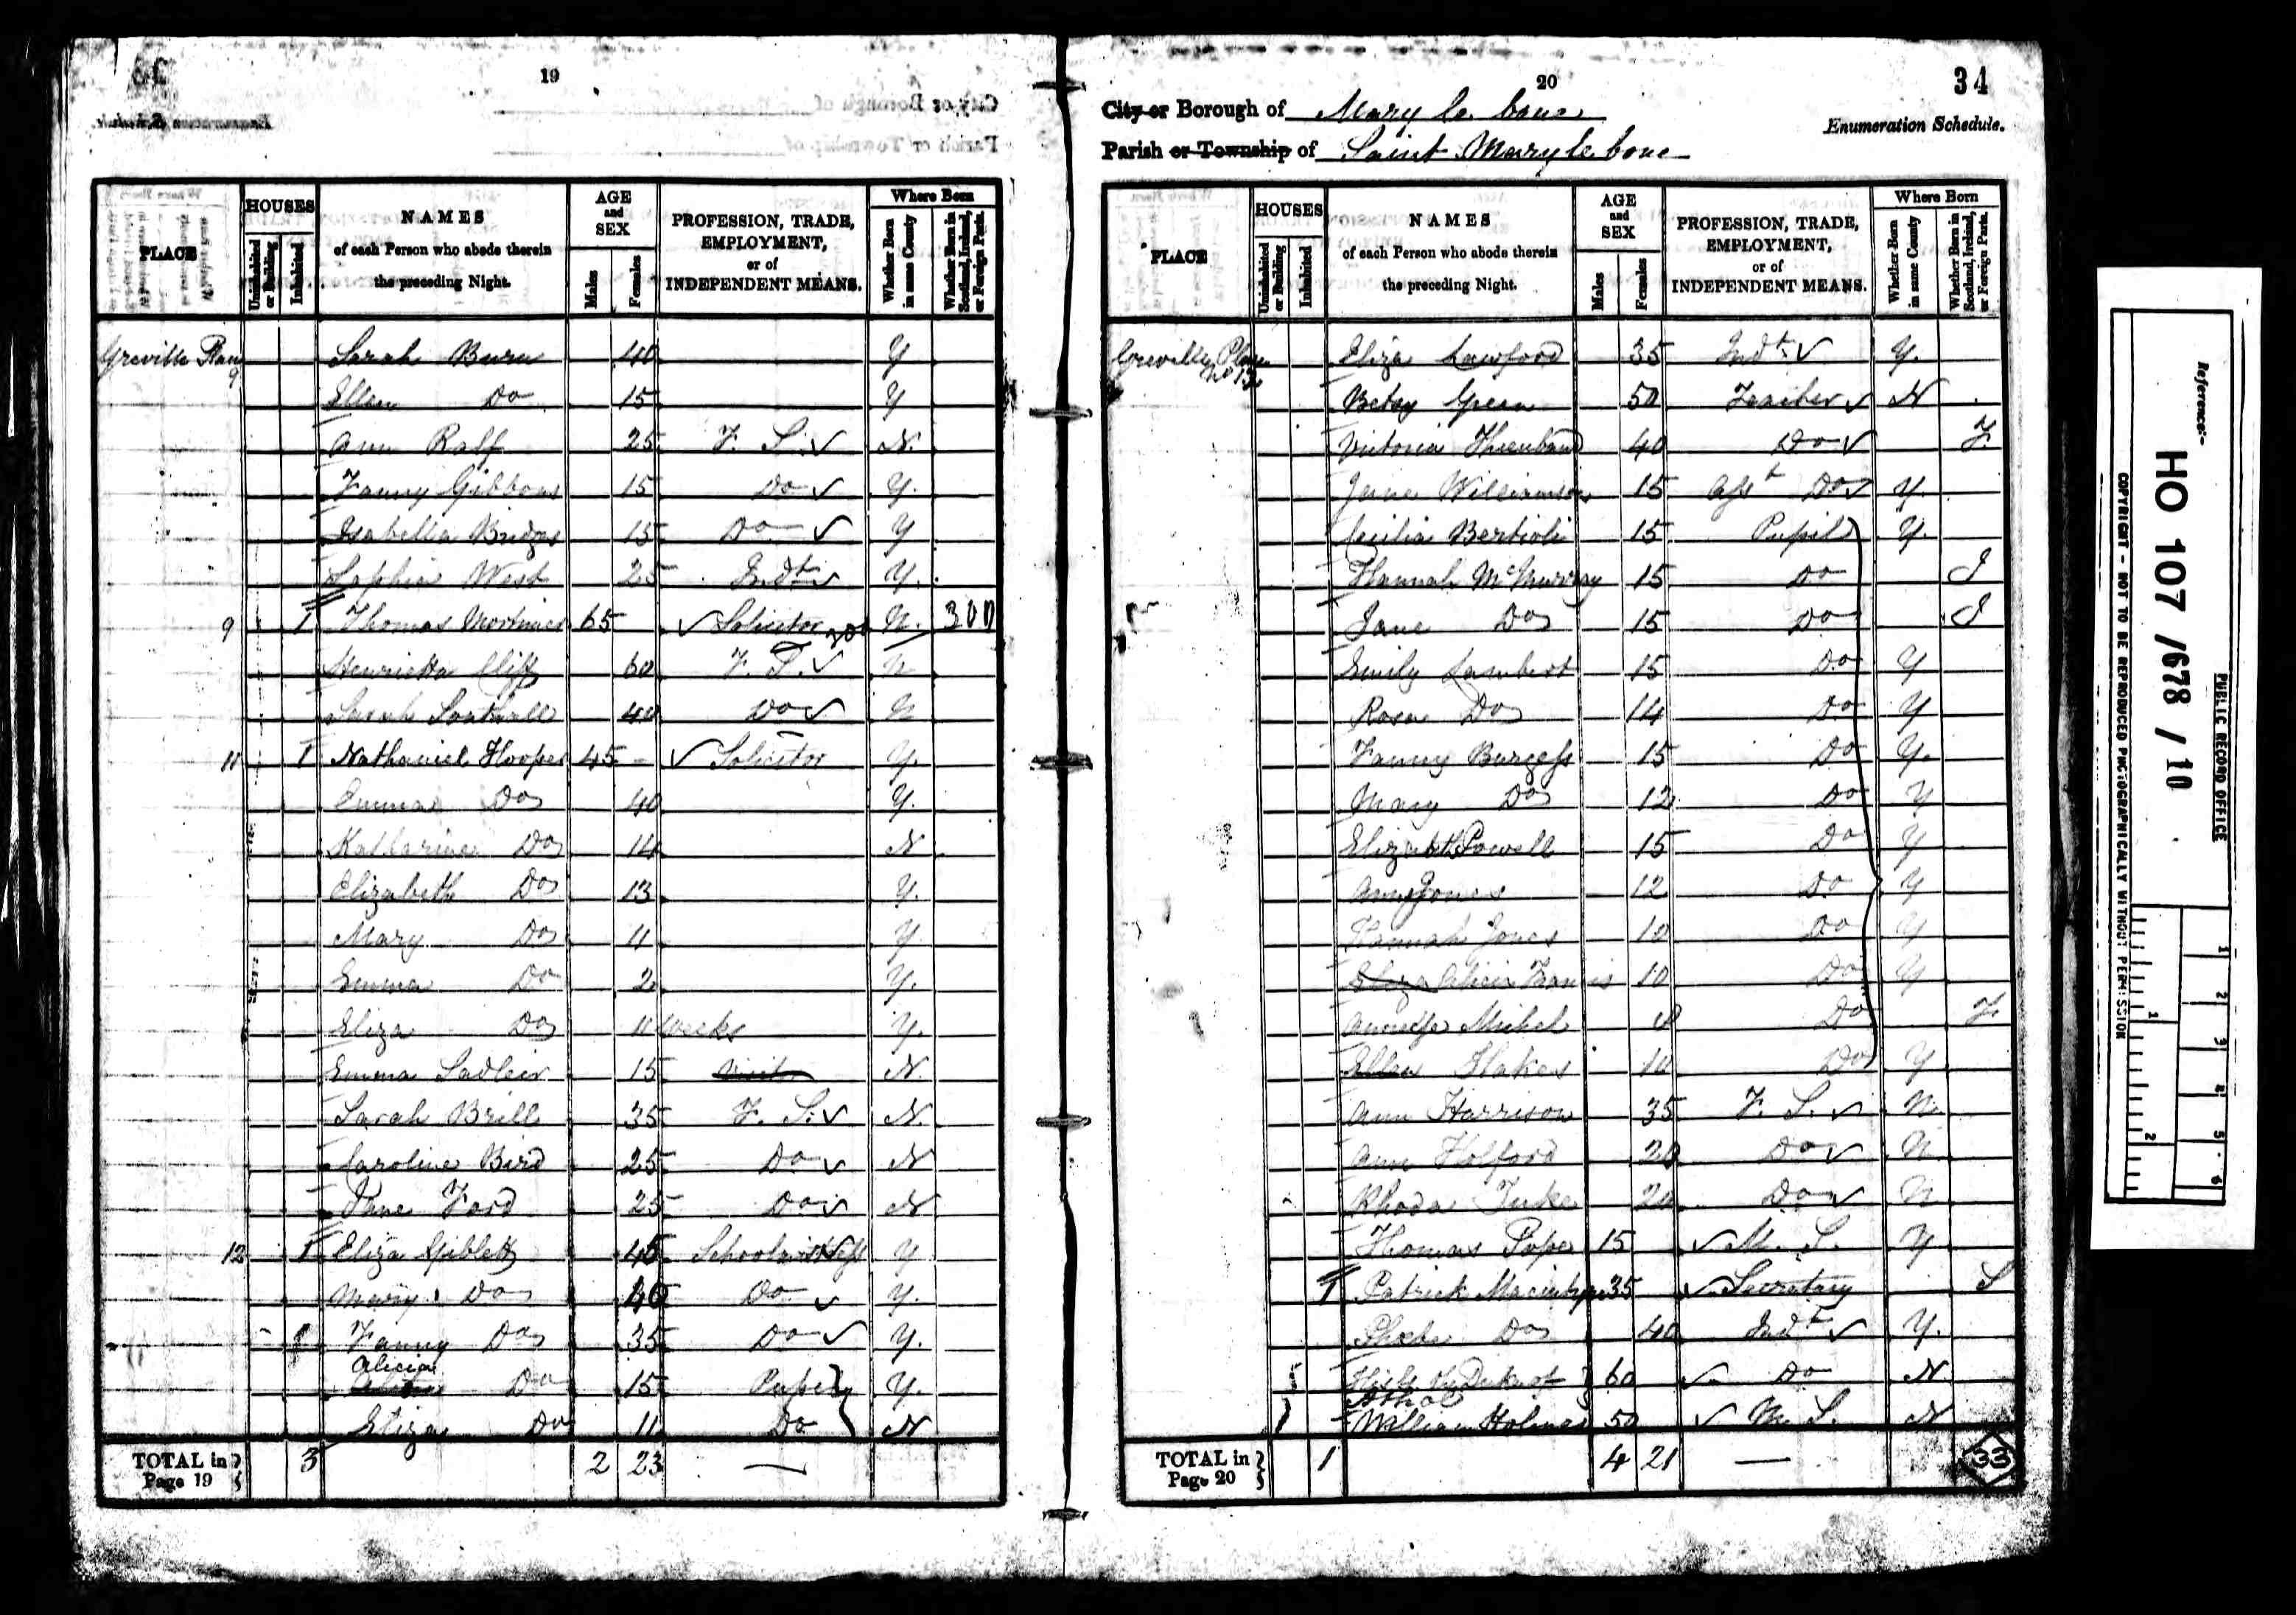 19
PLACE
HOUSES
Uninhabited or Building
Inhabited
NAMES
of each Person who abode therein
the preceding Night.
AGE
and
SEX
Males
Females
PROFESSION, TRADE,
EMPLOYMENT,
or of
INDEPENDENT MEANS.
Where Born
Whether Born in same County
Whether Born in Scotland, Ireland, or Foreign Parts.
Greville Place 9 Sarah Burn 40 Y
Ellen Do 15 Y
Ann Ralf 25 F. S. ✓ N.
Fanny Gibbons 15 Do ✓ Y.
Isabella Bridges 15 Do ✓ Y
Sophia West 25 Indt ✓ Y.
9 1 Thomas Mortimer 65 ✓ Solicitor N. 300
Henrietta Cliff 60 F. S. ✓ N
Sarah 40 Do ✓ N
11 1 Nathaniel Hooper 45 - ✓ Solicitor Y.
Emma Do 40 Y.
Katharine Do 14 N
Elizabeth Do 13 Y.
Mary Do 11 Y
Emma Do 2 Y.
Eliza Do 11 weeks Y.
Emma Sadleir 15 N.
Sarah Brill 35 F. S. ✓ N.
Caroline Bird 25 Do ✓ N
Jane Ford 25 Do ✓ N
12 1 Eliza Giblett 45 Schoolmistress Y
Mary Do 40 Do ✓ Y.
Fanny Do 35 Do ✓ Y.
Alicia Do 15 Pupil Y.
Eliza Do 11 Do N
TOTAL in Page 19 3 2 23 —
20
34
City or Borough of Mary le bone
Enumeration Schedule.
Parish or Township of Saint Marylebone
PLACE
HOUSES
Uninhabited or Building
Inhabited
NAMES
of each Person who abode therein
the preceding Night.
AGE
and
SEX
Males
Females
PROFESSION, TRADE,
EMPLOYMENT,
or of
INDEPENDENT MEANS.
Where Born
Whether Born in same County
Whether Born in Scotland, Ireland, or Foreign Parts.
Greville Place Eliza Lawford 35 Indt ✓ Y.
Betsy Green 50 Teacher ✓ N
Victoria 40 Do ✓ F.
Jane Williamson 15 Asst Do ✓ Y.
Cecilia Bertioli 15 Pupil Y.
Hannah McMurray 15 Do I
Jane Do 15 Do I
Emily Lambert 15 Do Y
Rosa Do 14 Do Y
Fanny Burgess 15 Do Y.
Mary Do 12 Do Y
Elizabeth Powell 15 Do Y
Ann Jones 12 Do Y
Hannah Jones 10 Do Y
Eliza Alicia Francis 10 Do Y
Michel 8 Do F
Ellen Hakes 10 Do Y
Ann Harrison 35 F. S. ✓ N.
Ann Holford 20 Do ✓ N
Rhoda Tuke 20 Do ✓ N
Thomas Pope 15 ✓ M. S. Y
1 Patrick Macintyre 35 ✓ Secretary S
Phebe Do 40 Indt ✓ Y.
the Duke of 60 ✓ Do N
Athol
William Holmes 50 ✓ M. S. N
TOTAL in Page 20 1 4 21 —
33
Reference:-
HO 107 / 678 / 10
PUBLIC RECORD OFFICE
COPYRIGHT - NOT TO BE REPRODUCED PHOTOGRAPHICALLY WITHOUT PERMISSION
1
2
3
4
5
6
1
2